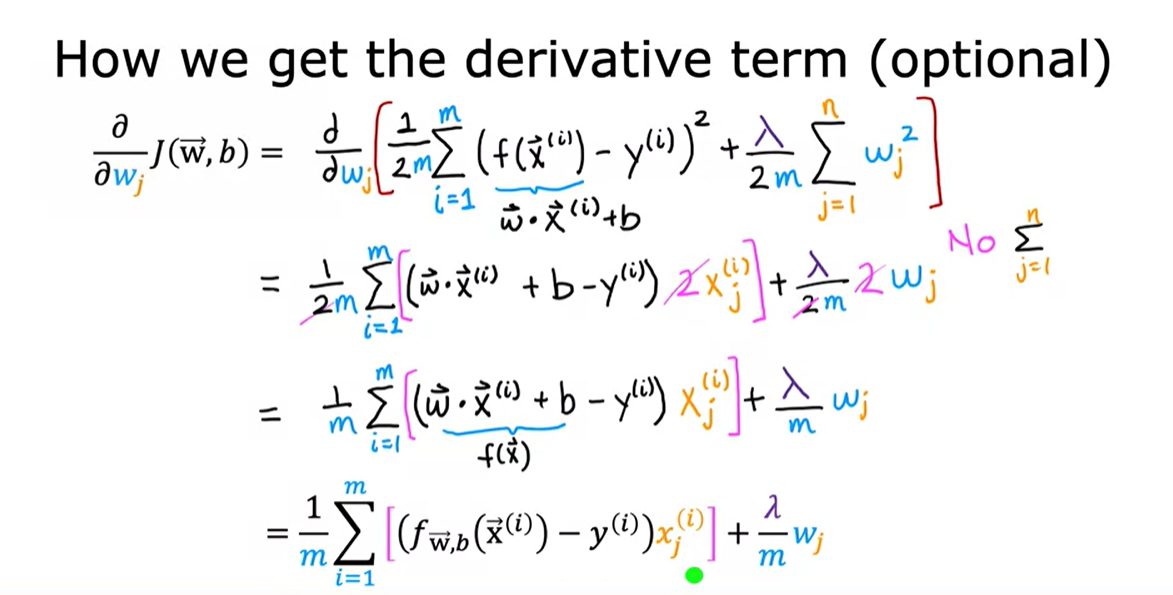 How we get the derivative term (optional)
∂/∂w_j J(w⃗, b) = d/dw_j [ 1/2m Σ_{i=1}^{m} (f(x⃗^(i)) − y^(i))² + λ/2m Σ_{j=1}^{n} w_j² ]
w⃗·x⃗^(i)+b
= 1/2m Σ_{i=1}^{m} [(w⃗·x⃗^(i) + b − y^(i)) 2x_j^(i)] + λ/2m 2w_j No Σ_{j=1}^{n}
= 1/m Σ_{i=1}^{m} [(w⃗·x⃗^(i) + b − y^(i)) x_j^(i)] + λ/m w_j
f(x⃗)
= 1/m Σ_{i=1}^{m} [(f_{w⃗,b}(x⃗^(i)) − y^(i))x_j^(i)] + λ/m w_j